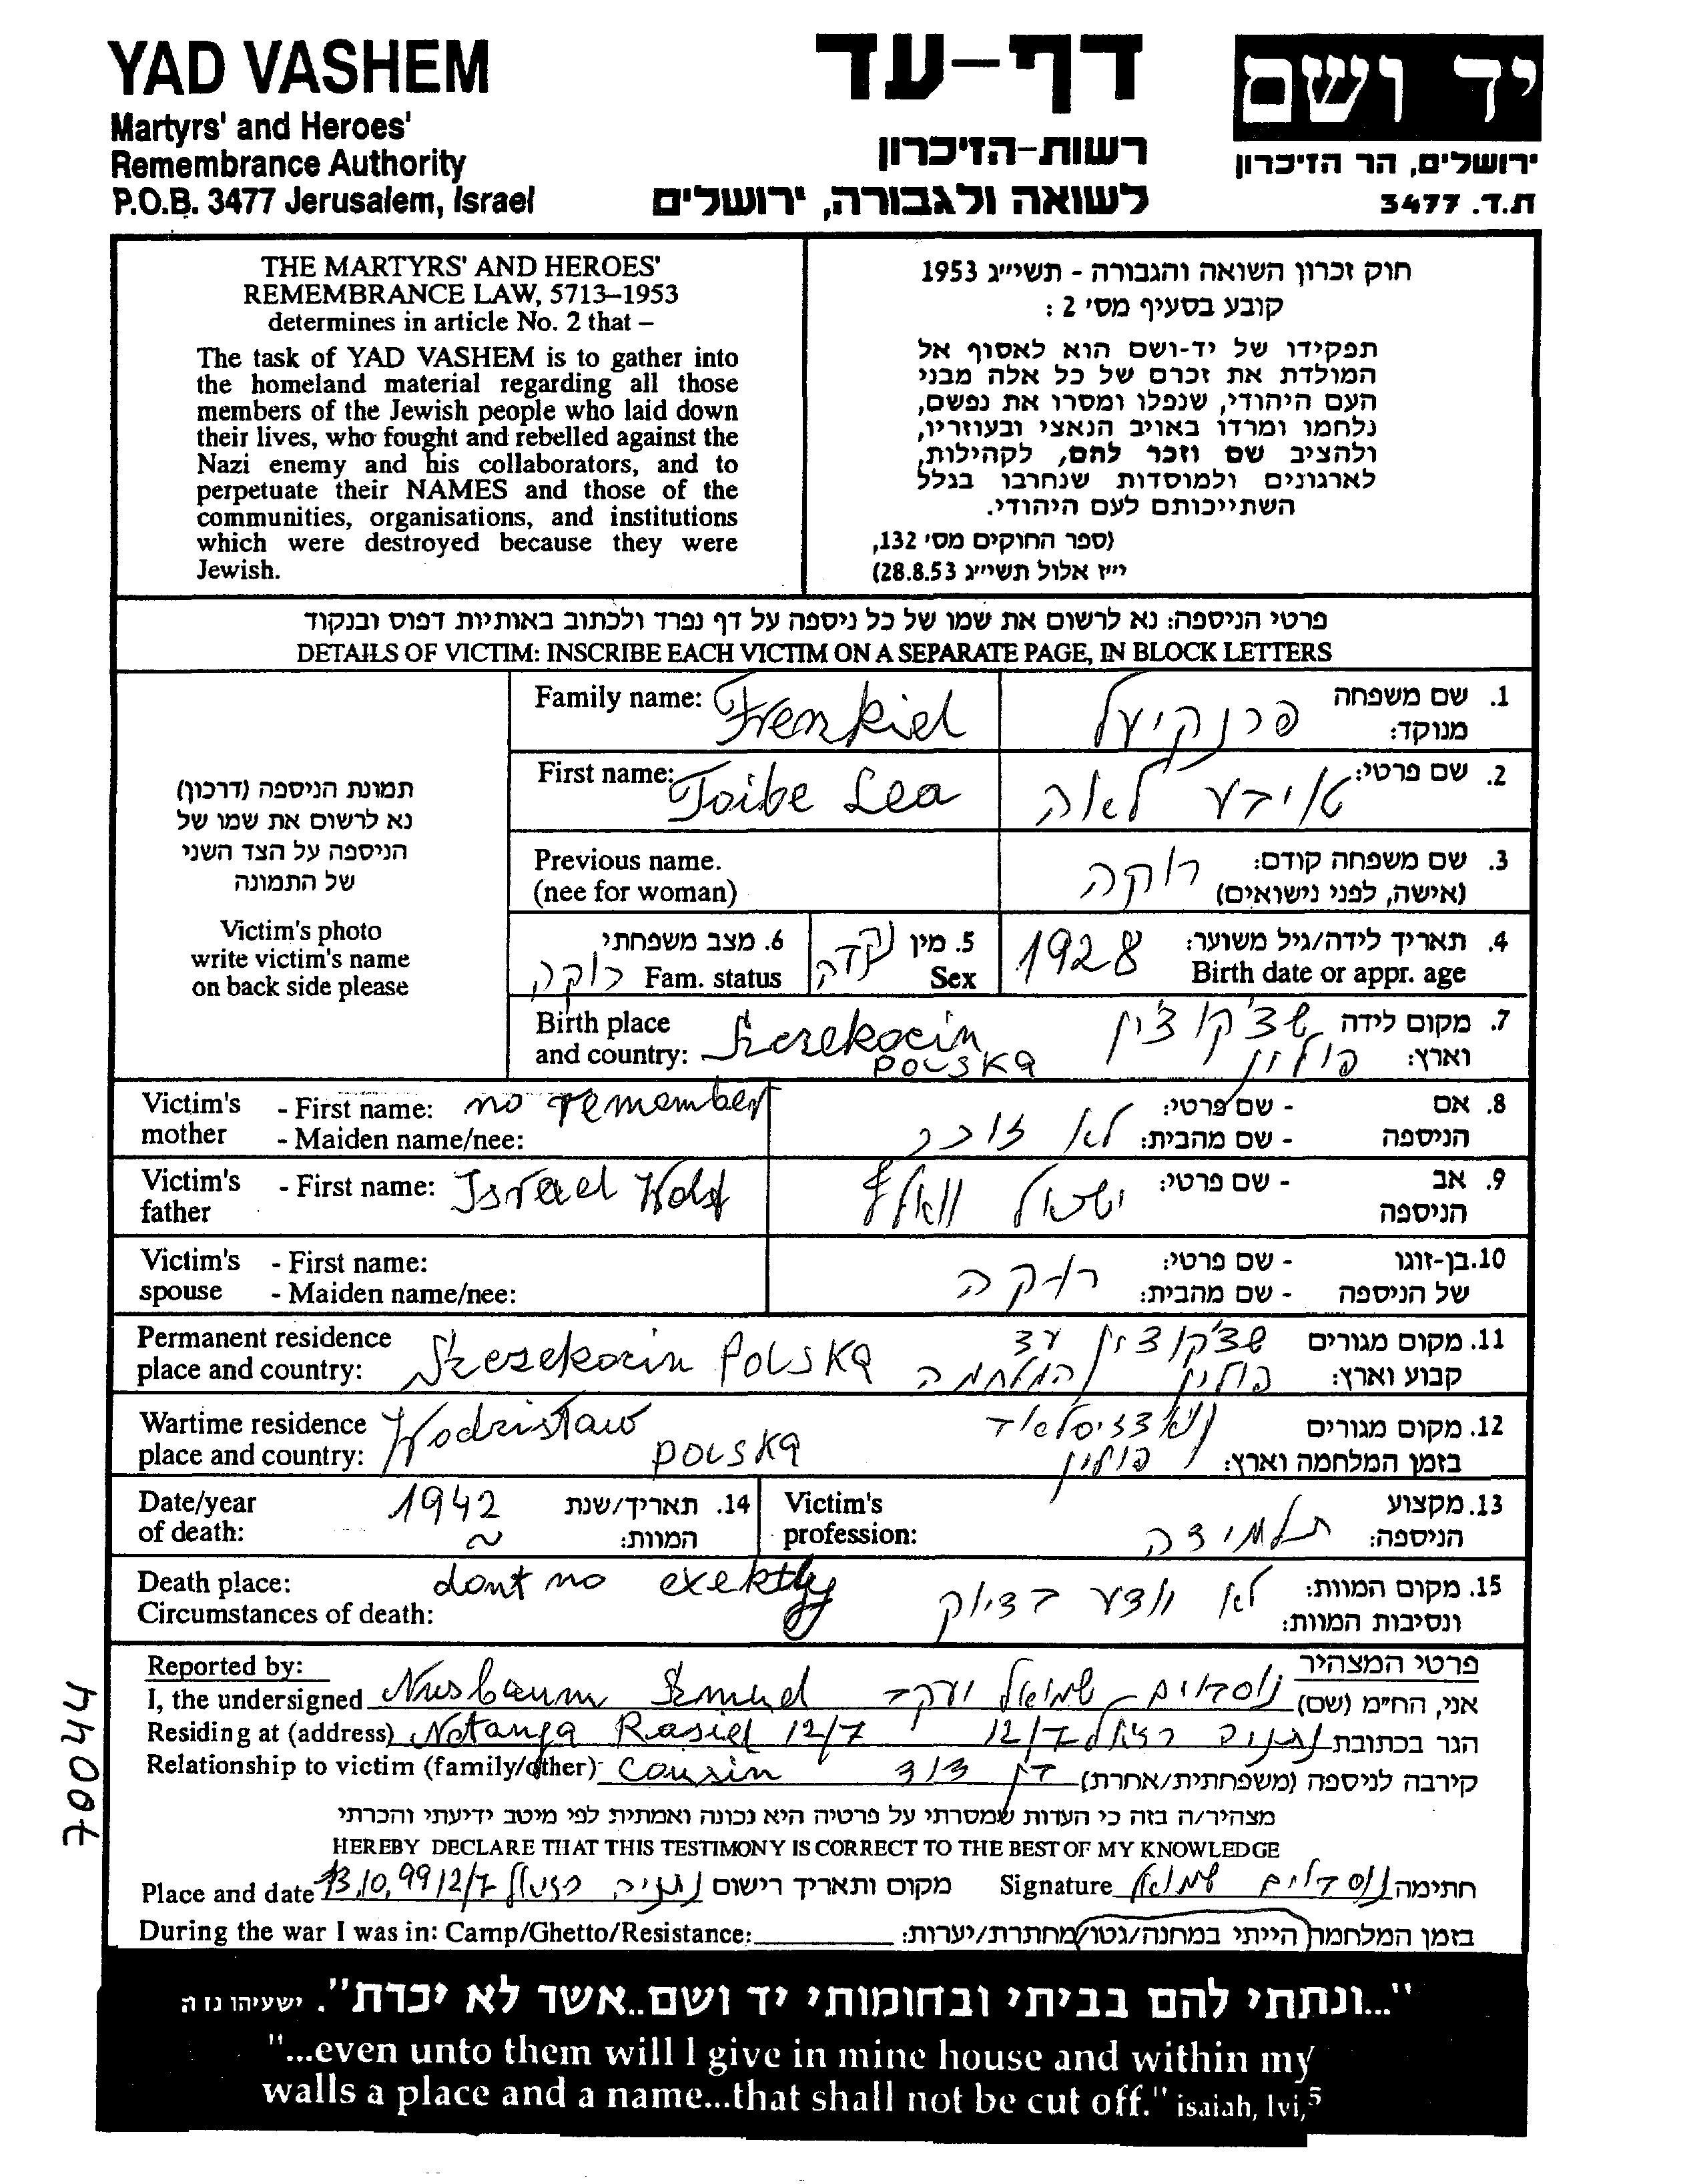 YAD VASHEM
Martyrs' and Heroes'
Remembrance Authority
P.O.B. 3477 Jerusalem, Israel
דף-עד
רשות-הזיכרון
לשואה ולגבורה, ירושלים
יד ושם
ירושלים, הר הזיכרון
ת.ד. 3477
THE MARTYRS' AND HEROES'
REMEMBRANCE LAW, 5713–1953
determines in article No. 2 that –
The task of YAD VASHEM is to gather into
the homeland material regarding all those
members of the Jewish people who laid down
their lives, who fought and rebelled against the
Nazi enemy and his collaborators, and to
perpetuate their NAMES and those of the
communities, organisations, and institutions
which were destroyed because they were
Jewish.
חוק זכרון השואה והגבורה - תשי״ג 1953
קובע בסעיף מס' 2 :
תפקידו של יד-ושם הוא לאסוף אל
המולדת את זכרם של כל אלה מבני
העם היהודי, שנפלו ומסרו את נפשם,
נלחמו ומרדו באויב הנאצי ובעוזריו,
ולהציב שם וזכר להם, לקהילות,
לארגונים ולמוסדות שנחרבו בגלל
השתייכותם לעם היהודי.
(ספר החוקים מס' 132,
י״ז אלול תשי״ג 28.8.53)
פרטי הניספה: נא לרשום את שמו של כל ניספה על דף נפרד ולכתוב באותיות דפוס ובנקוד
DETAILS OF VICTIM: INSCRIBE EACH VICTIM ON A SEPARATE PAGE, IN BLOCK LETTERS
תמונת הניספה (דרכון)
נא לרשום את שמו של
הניספה על הצד השני
של התמונה
Victim's photo
write victim's name
on back side please
Family name: Frenkiel פרנקיעל 1. שם משפחה
מנוקד:
First name: Toibe Lea טאיבע לאה 2. שם פרטי:
Previous name. רווקה 3. שם משפחה קודם:
(nee for woman) (אישה, לפני נישואים)
6. מצב משפחתי רווקה 5. מין נקבה 1928 4. תאריך לידה/גיל משוער:
Fam. status Sex Birth date or appr. age
Birth place Szczekocin שצ'קוצ'ין 7. מקום לידה
and country: POLSKA פולין וארץ:
Victim's - First name: no remember - שם פרטי: 8. אם
mother - Maiden name/nee: לא זוכר - שם מהבית: הניספה
Victim's - First name: Israel Wolf ישראל וואלף - שם פרטי: 9. אב
father הניספה
Victim's - First name: - שם פרטי: 10. בן-זוגו
spouse - Maiden name/nee: רווקה - שם מהבית: של הניספה
Permanent residence Szczekocin POLSKA שצ'קוצין עד 11. מקום מגורים
place and country: פולין המלחמה קבוע וארץ:
Wartime residence Wodzislaw 12. מקום מגורים
place and country: POLSKA פולין בזמן המלחמה וארץ:
Date/year 1942 14. תאריך/שנת Victim's 13. מקצוע
of death: ~ המוות: profession: תלמידה הניספה:
Death place: dont no exektly לא יודע בדיוק 15. מקום המוות:
Circumstances of death: ונסיבות המוות:
Reported by: פרטי המצהיר
I, the undersigned Nusbaum Szmuel נוסבוים שמואל יעקב אני, הח״מ (שם)
Residing at (address) Notanya Rasiel 12/7 נתניה רזיאל 12/7 הגר בכתובת
Relationship to victim (family/other) Cousin בן דוד קירבה לניספה (משפחתית/אחרת)
מצהיר/ה בזה כי העדות שמסרתי על פרטיה היא נכונה ואמתית לפי מיטב ידיעתי והכרתי
HEREBY DECLARE THAT THIS TESTIMONY IS CORRECT TO THE BEST OF MY KNOWLEDGE
Place and date 13.10.99 12/7 רזיאל נתניה מקום ותאריך רישום Signature נוסבוים שמואל חתימה
During the war I was in: Camp/Ghetto/Resistance: בזמן המלחמה הייתי במחנה/גטו/מחתרת/יערות:
70047
"...ונתתי להם בביתי ובחומותי יד ושם..אשר לא יכרת". ישעיהו נו ה
"...even unto them will I give in mine house and within my
walls a place and a name...that shall not be cut off." isaiah, lvi,5